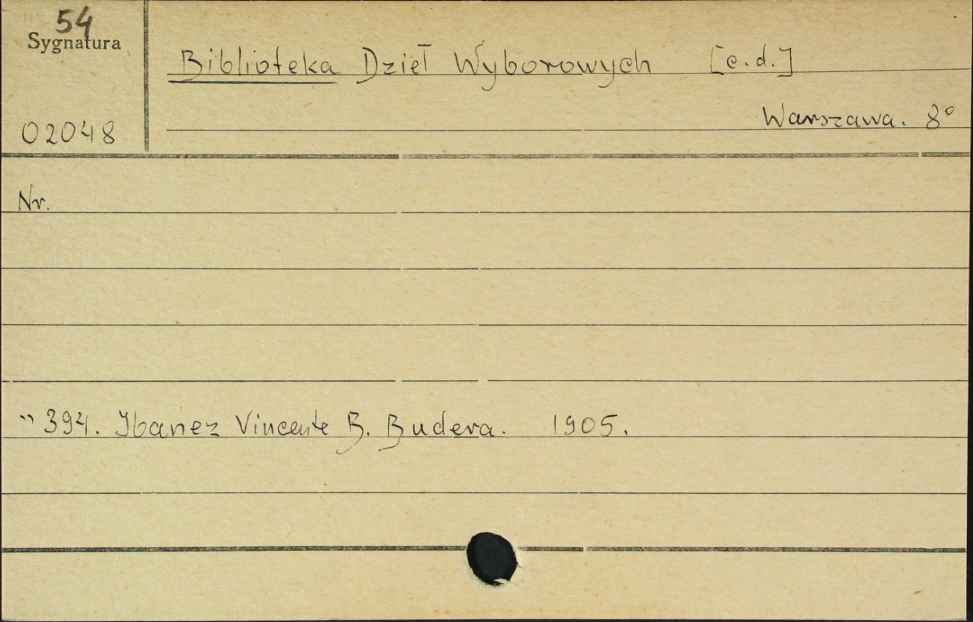 54
Sygnatura
Biblioteka Dzieł Wyborowych [c.d.]
02048
Warszawa. 8°
Nr.
" 394. Ibanez Vincente B. Budera. 1905.